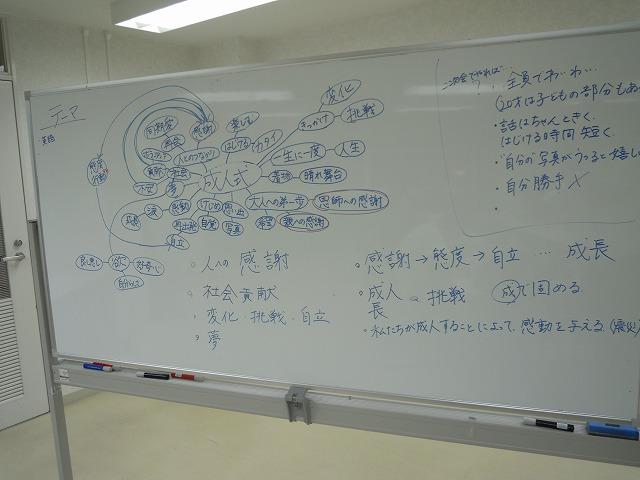 テーマ
成人式
同窓会
再会
感謝
楽しむ
ボランティア
人とのつながり
はじける
カタイ
きっかけ
変化
挑戦
貢献
社会
一生に一度
人生
不安
夢
着物
晴れ舞台
大人への第一歩
恩師への感謝
涙
感動
けじめ
思い出
希望
親への感謝
再出発
自覚
写真
自立
欲
・人への感謝
・社会貢献
・変化・挑戦・自立
・夢
・感謝→態度→自立 … 成長
・成人
長
挑戦
成で固める
・私たちが成人することによって、感動を与える(震災)
二次会でやれば…
全員でわいわい…
(20才は子どもの部分もあ
・話はちゃんときく。
はじける時間 短く
・"自分の"写真がうつると嬉し
・自分勝手 ×